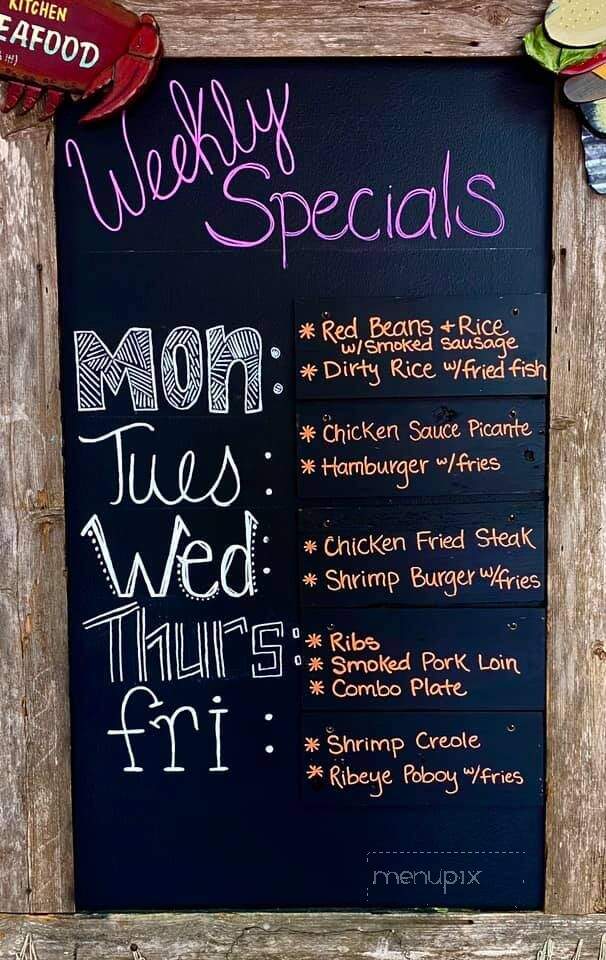 KITCHEN
EAFOOD
Weekly
Specials
Mon:
* Red Beans + Rice
w/smoked sausage
* Dirty Rice w/fried fish
Tues:
* Chicken Sauce Picante
* Hamburger w/fries
Wed:
* Chicken Fried Steak
* Shrimp Burger w/fries
Thurs:
* Ribs
* Smoked Pork Loin
* Combo Plate
fri:
* Shrimp Creole
* Ribeye Poboy w/fries
menupix